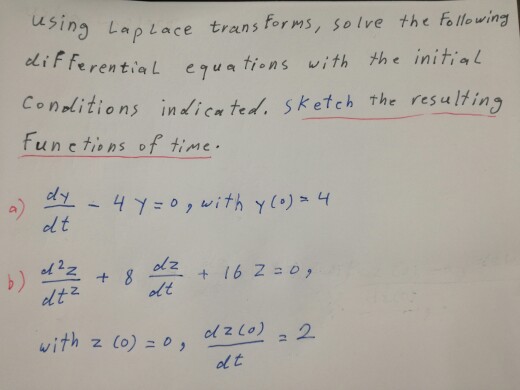 using Laplace transforms, solve the following
differential equations with the initial
Conditions indicated. Sketch the resulting
Functions of time.
a) dy/dt - 4y=0, with y(0)=4
b) d²z/dt² + 8 dz/dt + 16z=0,
with z(0)=0, dz(0)/dt = 2